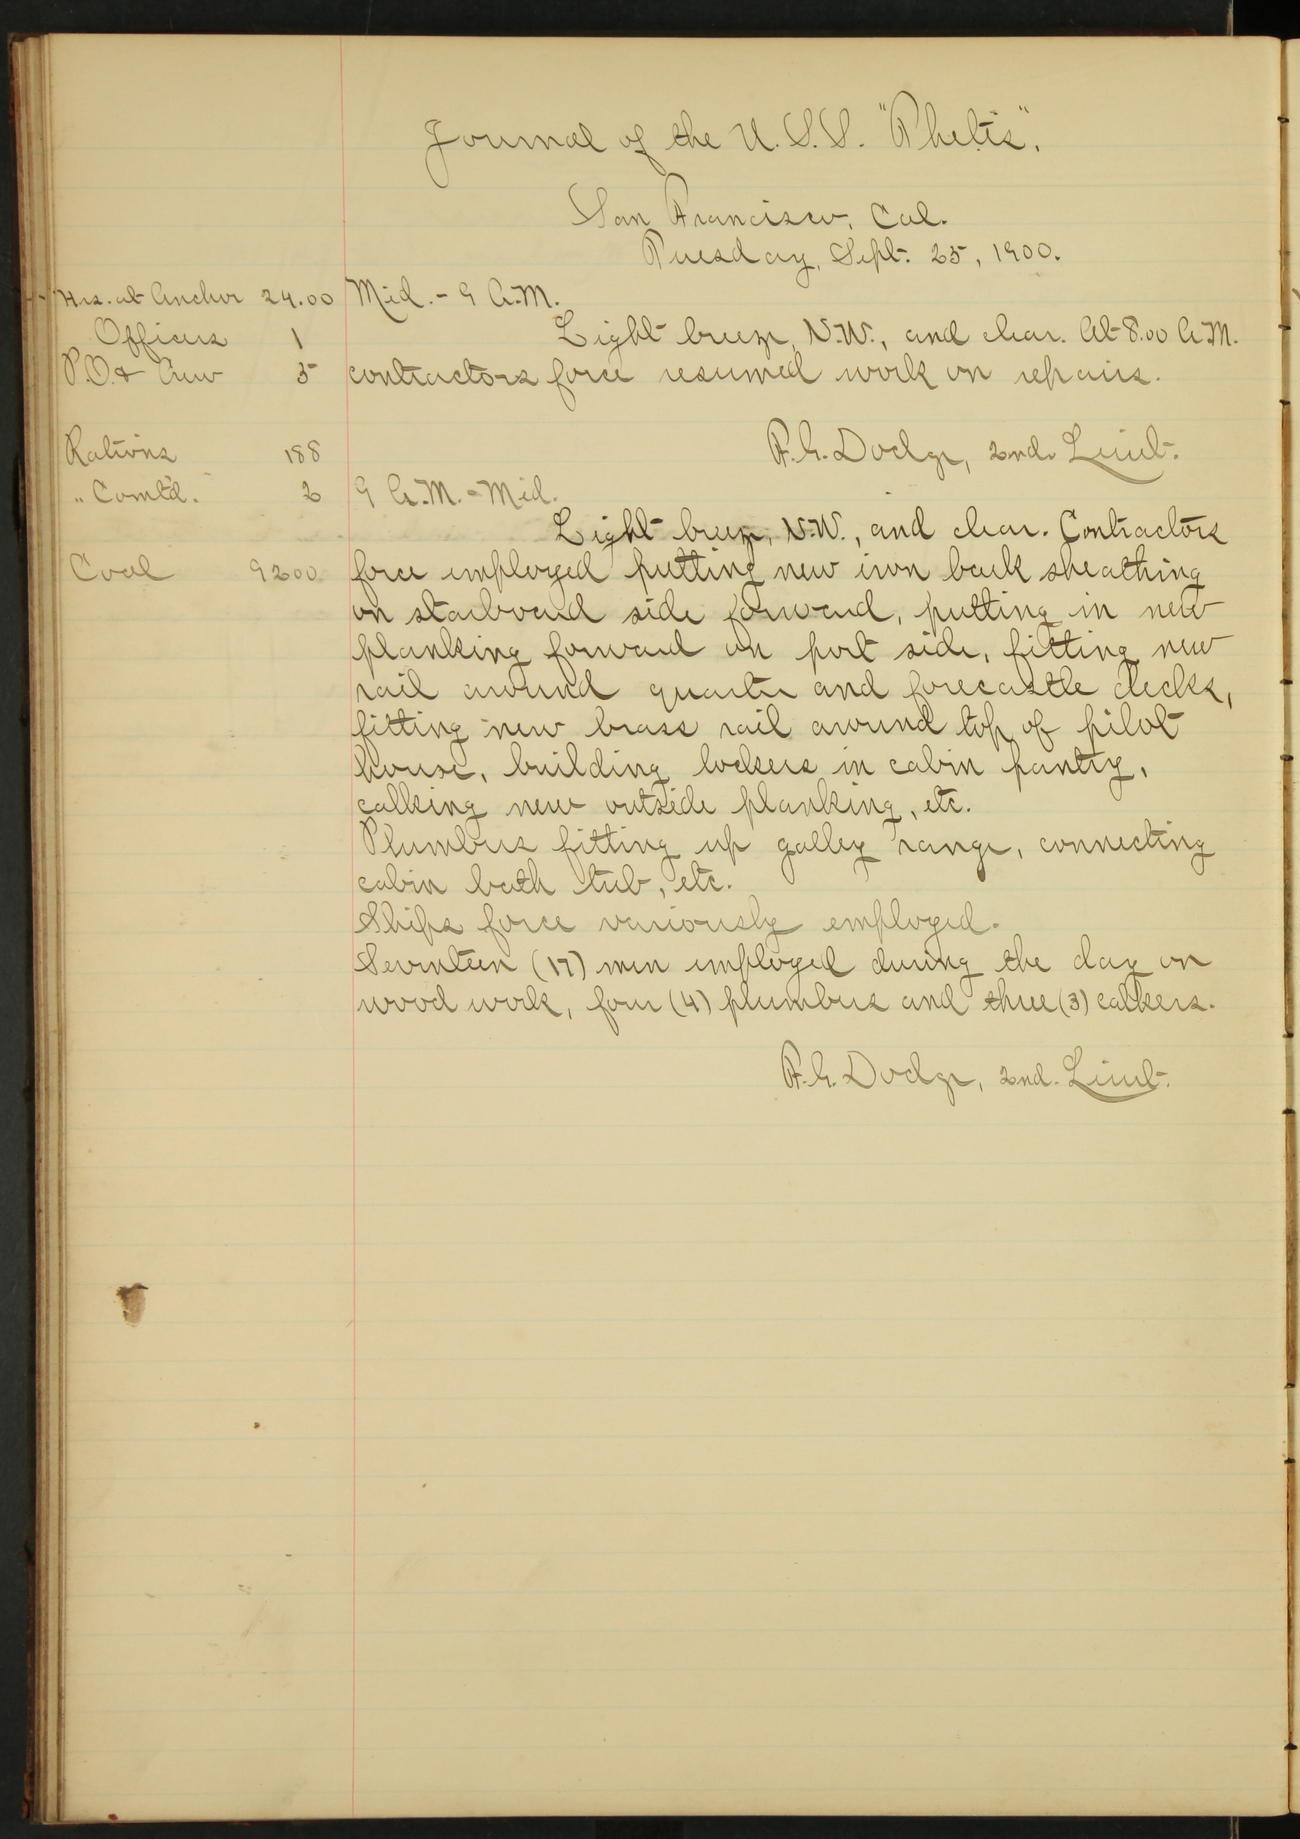 Journal of the U.S.S. "Thetis".
San Francisco, Cal.
Tuesday, Sept. 25, 1900.
Hrs. at Anchor 24.00 Mid. - 9 A.M.
Officers 1 Light breeze, N.W., and clear. At 8.00 A.M.
P.O. & Crew 5 contractors force resumed work on repairs.
Rations 188 F.G. Dodge, 2nd. Lieut.
" Comtd. 2 9 A.M. - Mid.
Light breeze, N.W., and clear. Contractors
Coal 9200 force employed putting new iron bark sheathing
on starboard side forward, putting in new
planking forward on port side, fitting new
rail around quarter and forecastle decks,
fitting new brass rail around top of pilot
house, building lockers in cabin pantry,
calking new outside planking, etc.
Plumbers fitting up galley range, connecting
cabin bath tub, etc.
Ships force variously employed.
Seventeen (17) men employed during the day on
wood work, four (4) plumbers and three (3) calkers.
F.G. Dodge, 2nd. Lieut.